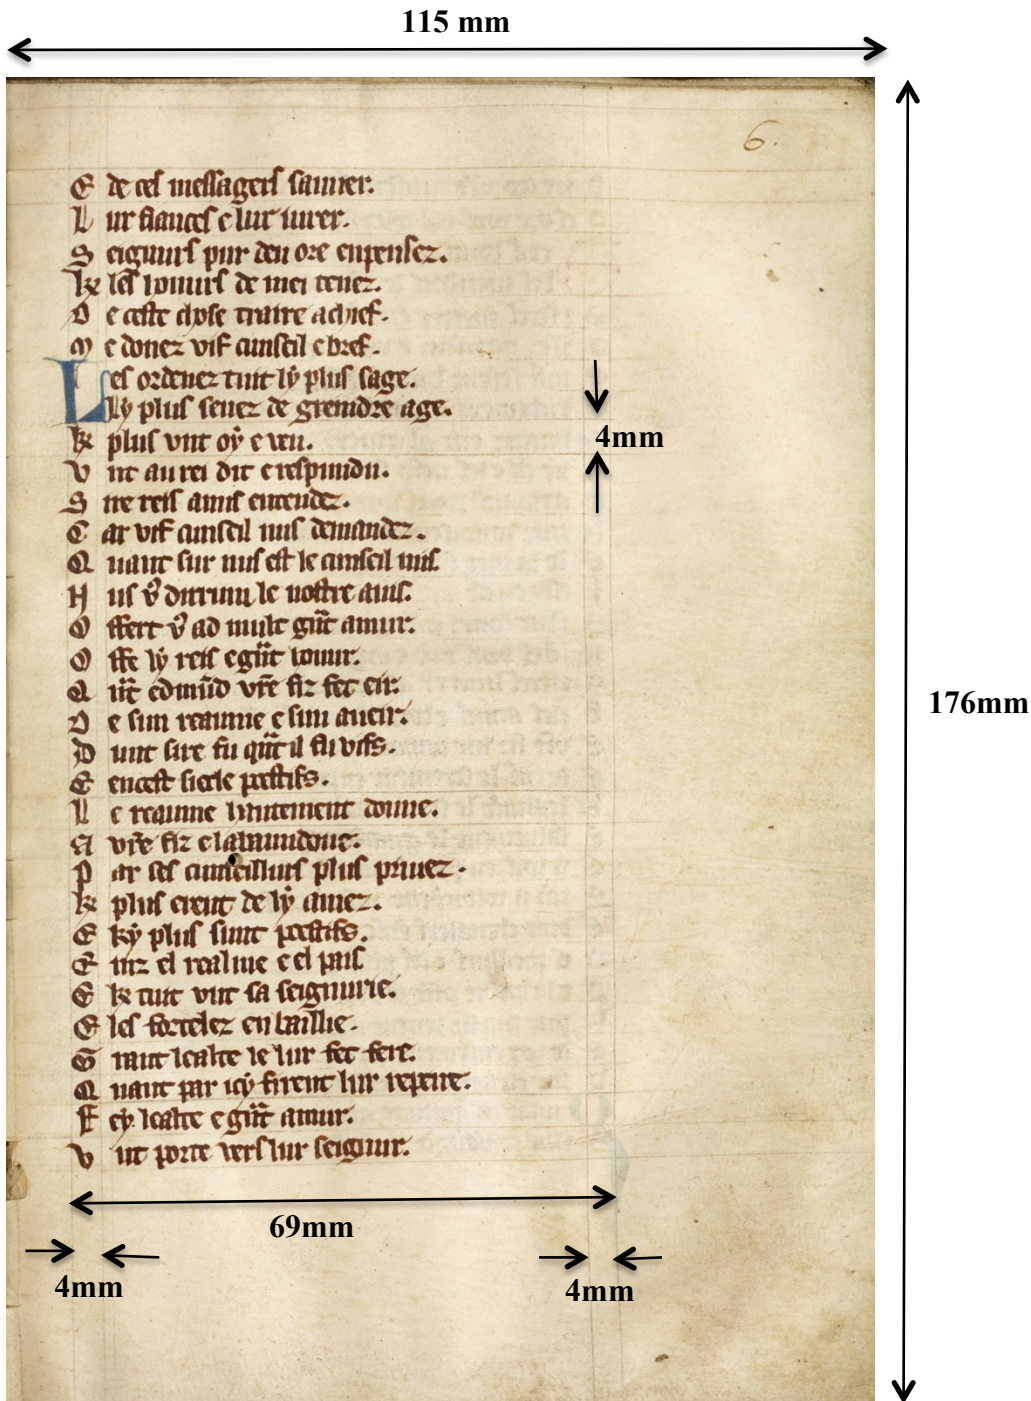 115 mm
6.
E de ces messagers sauuer.
L ur fiances e lur iurer.
S eignurs pur deu ore enpensez.
K les honurs de mei tenez.
D e ceste chose traire a chief.
M e donez vif cunseil e bref.
Les ordenez tuit ly plus sage.
Ly plus senez de greindre age.
K plus vnt oy e veu.
V nt au rei dit e respundu.
S ire reis amis entendez.
C ar vif cunseil nus demandez.
Q uant sur nus est le cunseil mis
N us v9 durrum le nostre auis.
O ffert v9 ad mult gͣnt amur.
O ffe ly reis e gͣnt honur.
Q ͣnt edmūd vr̄e fiz fet eir.
D e sun reaume e sun aueir.
D unt sire fu qͣnt il fu vifs.
E en cest siecle poestifs.
L e reaume lintement donne.
A vr̄e fiz e labaundone.
P ar ses cunseillurs plus priuez.
K plus erent de ly amez.
E ky plus sunt poestifs.
E inz el realme e el pais
E k tuit vnt sa seignurie.
E les fortelez en baillie.
G rant lealte le lur fet fere.
Q uant par icy firent lur repeire.
F ey lealte e gͣnt amur.
V nt porte vers lur seignur.
4mm
176mm
69mm
4mm
4mm